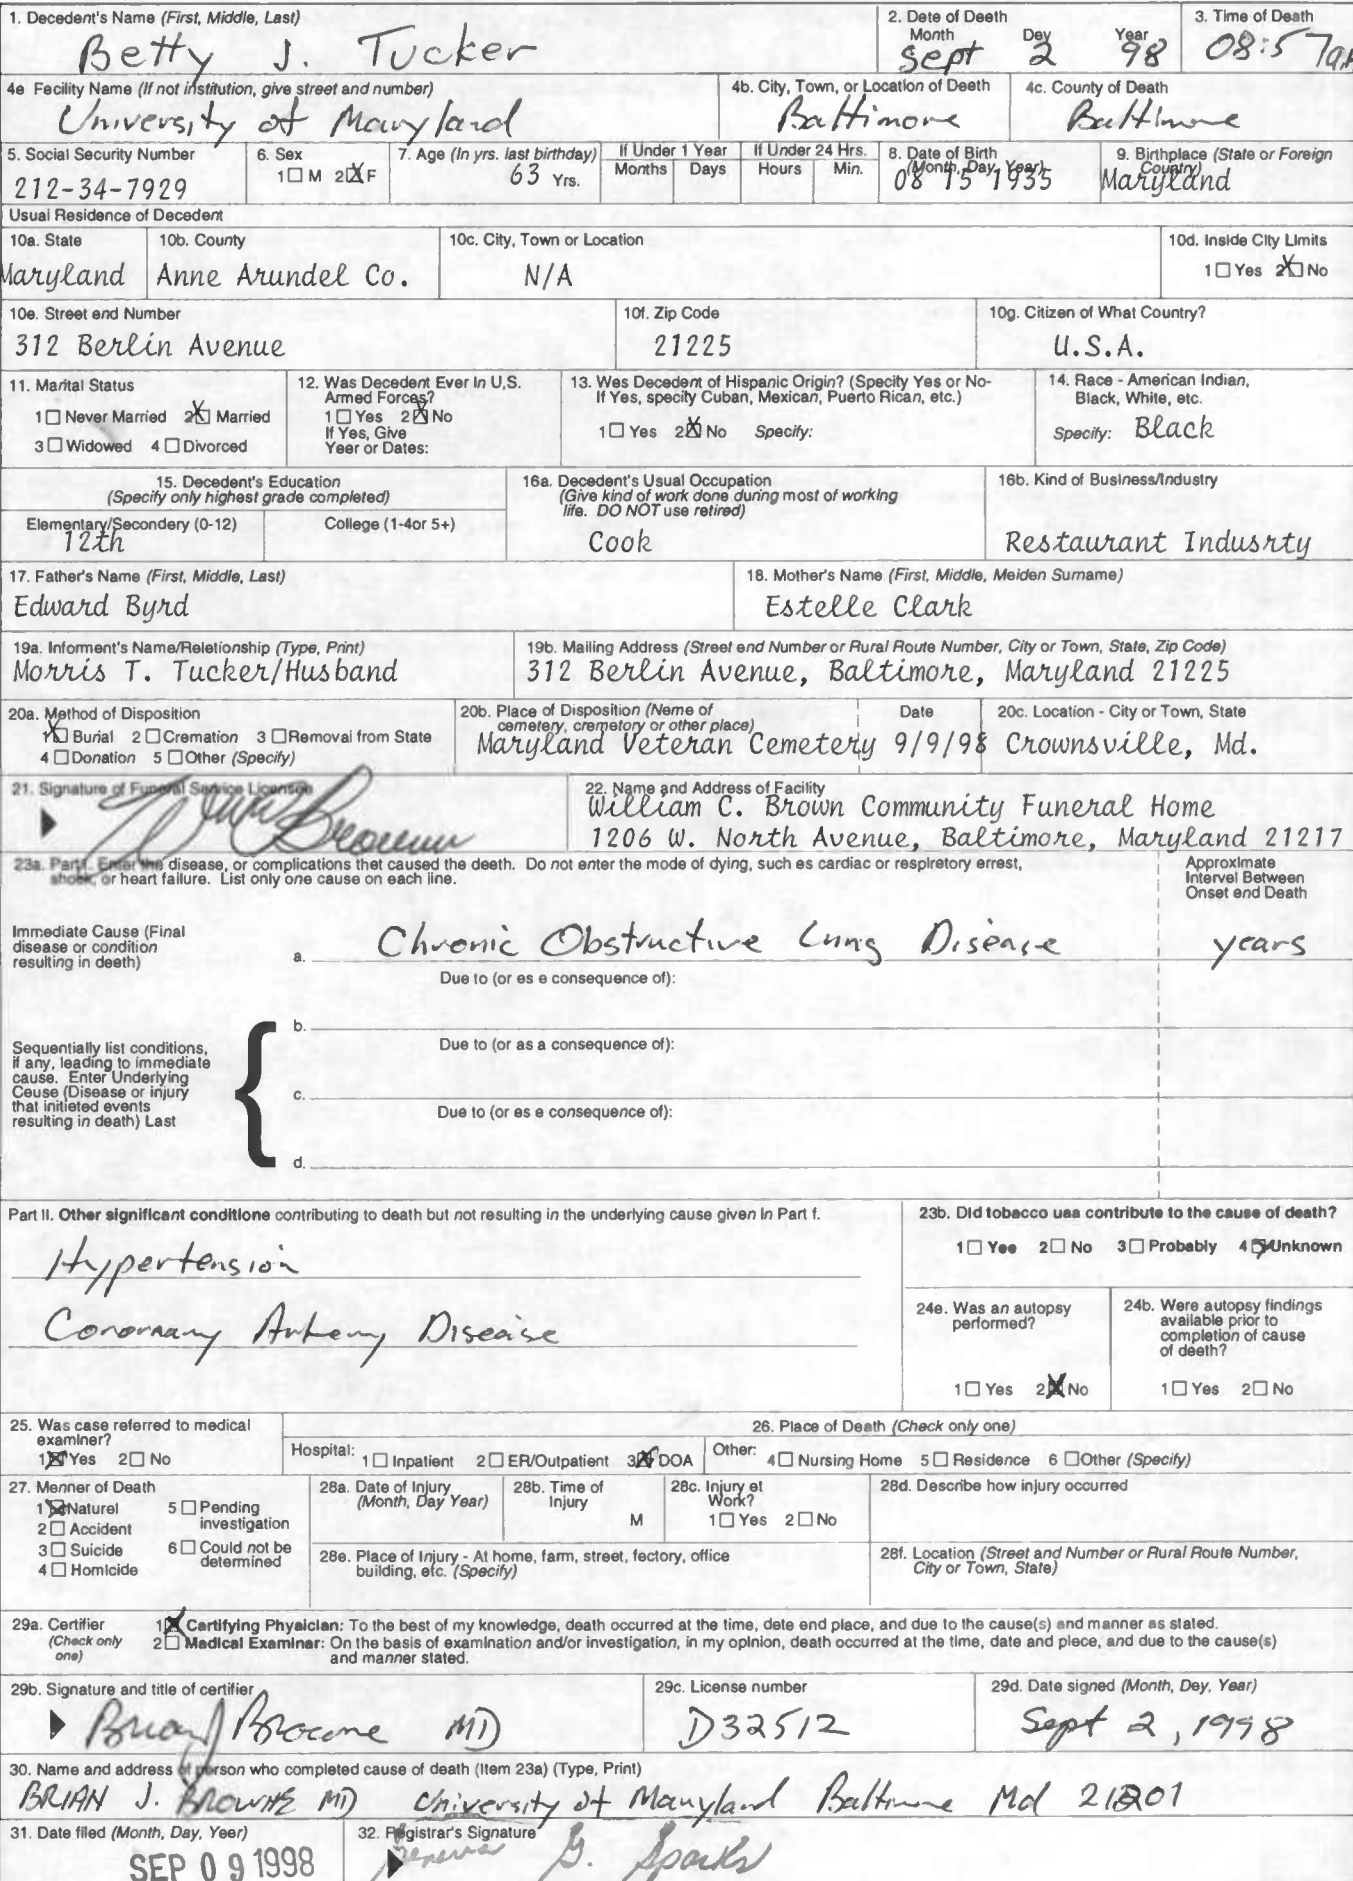 1. Decedent's Name (First, Middle, Last)
Betty J. Tucker
2. Date of Deeth
Month Dey Year
Sept 2 98
3. Time of Death
08:57am
4e Fecility Name (If not institution, give street and number)
University of Maryland
4b. City, Town, or Location of Deeth
Baltimore
4c. County of Death
Baltimore
5. Social Security Number
212-34-7929
6. Sex
1☐M 2☒F
7. Age (In yrs. last birthday)
63 Yrs.
If Under 1 Year
Months Days
If Under 24 Hrs.
Hours Min.
8. Date of Birth
(Month, Day, Year)
08 15 1935
9. Birthplace (State or Foreign
Country)
Maryland
Usual Residence of Decedent
10a. State
Maryland
10b. County
Anne Arundel Co.
10c. City, Town or Location
N/A
10d. Inside City Limits
1☐Yes 2☒No
10e. Street end Number
312 Berlin Avenue
10f. Zip Code
21225
10g. Citizen of What Country?
U.S.A.
11. Marital Status
1☐ Never Married 2☒ Married
3☐ Widowed 4☐ Divorced
12. Was Decedent Ever In U,S.
Armed Forces?
1☐Yes 2☒No
If Yes, Give
Yeer or Dates:
13. Wes Decedent of Hispanic Origin? (Specify Yes or No-
If Yes, specify Cuban, Mexican, Puerto Rican, etc.)
1☐Yes 2☒No Specify:
14. Race - American Indian,
Black, White, etc.
Specify: Black
15. Decedent's Education
(Specify only highest grade completed)
Elementary/Secondery (0-12) College (1-4or 5+)
12th
16a. Decedent's Usual Occupation
(Give kind of work done during most of working
life. DO NOT use retired)
Cook
16b. Kind of Business/Industry
Restaurant Indusrty
17. Father's Name (First, Middle, Last)
Edward Byrd
18. Mother's Name (First, Middle, Meiden Surname)
Estelle Clark
19a. Informent's Name/Reletionship (Type, Print)
Morris T. Tucker/Husband
19b. Mailing Address (Street end Number or Rural Route Number, City or Town, State, Zip Code)
312 Berlin Avenue, Baltimore, Maryland 21225
20a. Method of Disposition
1☒ Burial 2☐Cremation 3☐Removal from State
4☐Donation 5☐Other (Specify)
20b. Place of Disposition (Neme of
cemetery, cremetory or other place)
Date
Maryland Veteran Cemetery 9/9/98
20c. Location - City or Town, State
Crownsville, Md.
21. Signature of Funeral Service Licensee
Wm C Brown
22. Name and Address of Facility
William C. Brown Community Funeral Home
1206 W. North Avenue, Baltimore, Maryland 21217
23a. Part I. Enter the disease, or complications thet caused the deeth. Do not enter the mode of dying, such es cardiac or respiretory errest,
shock, or heart failure. List only one cause on each line.
Approximate
Intervel Between
Onset end Death
Immediate Cause (Final
disease or condition
resulting in death)
a. Chronic Obstructive Lung Disease years
Due to (or es e consequence of):
Sequentially list conditions,
if any, leading to immediate
cause. Enter Underlying
Ceuse (Disease or injury
that initieted events
resulting in death) Last
b.
Due to (or as a consequence of):
c.
Due to (or es e consequence of):
d.
Part II. Other significant conditione contributing to death but not resulting in the underlying cause given in Part f.
Hypertension
Coronary Artery Disease
23b. Did tobacco uaa contribute to the cause of death?
1☐ Yee 2☐ No 3☐ Probably 4☒Unknown
24e. Was an autopsy
performed?
1☐ Yes 2☒No
24b. Were autopsy findings
available prior to
completion of cause
of deeth?
1☐Yes 2☐No
25. Was case referred to medical
examiner?
1☒Yes 2☐ No
26. Place of Death (Check only one)
Hospital: 1☐ Inpatient 2☐ ER/Outpatient 3☒ DOA
Other: 4☐ Nursing Home 5☐ Residence 6☐Other (Specify)
27. Menner of Death
1☒Naturel
2☐ Accident
3☐ Suicide
4☐ Homicide
5☐ Pending
investigation
6☐ Could not be
determined
28a. Date of Injury
(Month, Day Year)
28b. Time of
Injury
M
28c. Injury et
Work?
1☐Yes 2☐No
28d. Describe how injury occurred
28e. Place of Injury - At home, farm, street, fectory, office
building, etc. (Specify)
28f. Location (Street and Number or Rural Route Number,
City or Town, State)
29a. Certifier
(Check only
one)
1☒ Cartifying Phyaician: To the best of my knowledge, death occurred at the time, dete end place, and due to the cause(s) and manner as stated.
2☐ Madical Examinar: On the basis of examination and/or investigation, in my opinion, death occurred at the time, date and plece, and due to the cause(s)
and manner stated.
29b. Signature and title of certifier
Brian J Browne MD
29c. License number
D32512
29d. Date signed (Month, Dey, Year)
Sept 2, 1998
30. Name and address of person who completed cause of death (Item 23a) (Type, Print)
BRIAN J. BROWNE MD University of Maryland Baltimore Md 21201
31. Date filed (Month, Day, Yeer)
SEP 09 1998
32. Registrar's Signature
Geneva G. Sparks